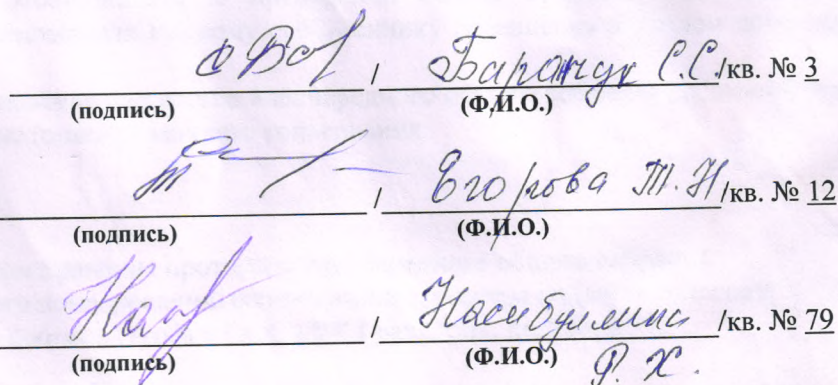 / Баранчук С.С. /кв. № 3
(подпись) (Ф.И.О.)
/ Егорова Т.Н /кв. № 12
(подпись) (Ф.И.О.)
/ Насибуллина /кв. № 79
(подпись) (Ф.И.О.) Р. Х.